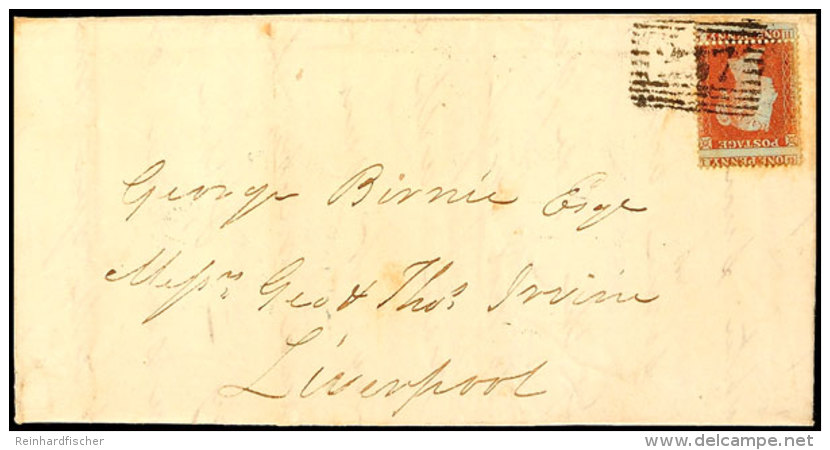 ONE PENNY
POSTAGE
ONE PENNY
George Birnie Esqe
Messrs Geo & Thos Irvine
Liverpool
Reinhardfischer
delcampe.net